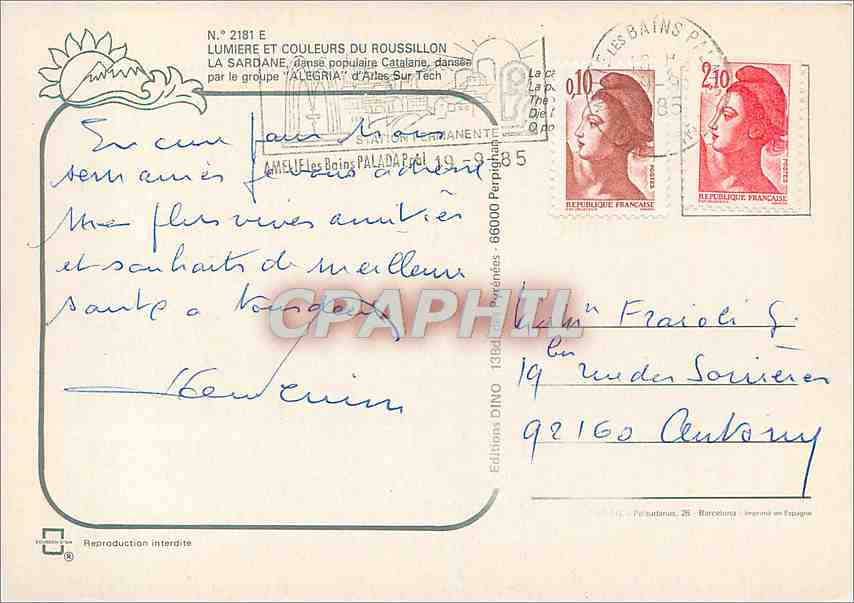 N.° 2181 E
LUMIERE ET COULEURS DU ROUSSILLON
LA SARDANE, danse populaire Catalane, dansée
par le groupe "ALEGRIA" d'Arles Sur Tech
STATION PERMANENTE
AMELIE les Bains PALADA Ppal 19-9-85
LES BAINS
85
0,10
POSTES
REPUBLIQUE FRANÇAISE
2,10
POSTES
REPUBLIQUE FRANÇAISE
En cure pour trois
semaines je vous adresse
mes plus vives amitiés
et souhaits de meilleure
santé à tous deux
CPAPHIL
Editions DINO - 13Bd. des Pyrénées - 66000 Perpignan
Fraioli G.
19 bis rue des Sorrières
92160 Antony
26 - Barcelona - Imprimé en Espagne
Reproduction interdite
®